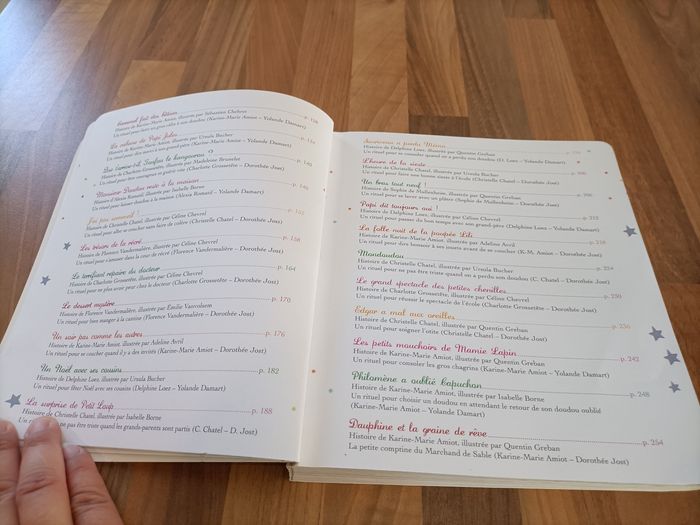 Gaspard fait des bêtises p. 128
Histoire de Karine-Marie Amiot, illustrée par Sébastien Chebret
Un rituel pour faire un gros câlin à son doudou (Karine-Marie Amiot – Yolande Damart)
La cabane de Papi Jules p. 134
Histoire de Karine-Marie Amiot, illustrée par Ursula Bucher
Un rituel pour dire merci à son grand-père (Karine-Marie Amiot – Yolande Damart)
Qui berce-t-il, Sinfou le kangourou ? p. 140
Histoire de Charlotte Grossetête, illustrée par Madeleine Brunelet
Un rituel pour être courageux et guérir vite (Charlotte Grossetête – Dorothée Jost)
Monsieur Doudou reste à la maison p. 146
Histoire d'Alexia Romatif, illustrée par Isabelle Borne
Un rituel pour laisser doudou à la maison (Alexia Romatif – Yolande Damart)
J'ai pas sommeil ! p. 152
Histoire de Christelle Chatel, illustrée par Céline Chevrel
Un rituel pour aller se coucher sans faire de colère (Christelle Chatel – Dorothée Jost)
Les trésors de la récré p. 158
Histoire de Florence Vandermarlière, illustrée par Céline Chevrel
Un rituel pour s'amuser dans la cour de récré (Florence Vandermarlière – Dorothée Jost)
Le terrifiant repaire du docteur p. 164
Histoire de Charlotte Grossetête, illustrée par Céline Chevrel
Un rituel pour ne plus avoir peur chez le docteur (Charlotte Grossetête – Dorothée Jost)
Le dessert mystère p. 170
Histoire de Florence Vandermarlière, illustrée par Émilie Vanvolsem
Un rituel pour bien manger à la cantine (Florence Vandermarlière – Dorothée Jost)
Un soir pas comme les autres p. 176
Histoire de Karine-Marie Amiot, illustrée par Adeline Avril
Un rituel pour se coucher quand il y a des invités (Karine-Marie Amiot – Dorothée Jost)
Un Noël avec ses cousins p. 182
Histoire de Delphine Loez, illustrée par Ursula Bucher
Un rituel pour fêter Noël avec ses cousins (Delphine Loez – Yolande Damart)
La surprise de Petit Loup p. 188
Histoire de Christelle Chatel, illustrée par Isabelle Borne
ne pas être triste quand les grands-parents sont partis (C. Chatel – D. Jost)
Souriceau a perdu Mimo
Histoire de Delphine Loez, illustrée par Quentin Greban
Un rituel pour se consoler quand on a perdu son doudou (D. Loez – Yolande Damart)
L'heure de la sieste p. 200
Histoire de Christelle Chatel, illustrée par Ursula Bucher
Un rituel pour faire une bonne sieste à l'école (Christelle Chatel – Dorothée Jost)
Un bras tout neuf ! p. 206
Histoire de Sophie de Mullenheim, illustrée par Quentin Greban
Un rituel pour se laver avec un plâtre (Sophie de Mullenheim – Dorothée Jost)
Papi dit toujours oui ! p. 212
Histoire de Delphine Loez, illustrée par Céline Chevrel
Un rituel pour passer du bon temps avec son grand-père (Delphine Loez – Yolande Damart)
La folle nuit de la poupée Lili p. 218
Histoire de Karine-Marie Amiot, illustrée par Adeline Avril
Un rituel pour dire bonsoir à ses jouets avant de se coucher (K.-M. Amiot – Dorothée Jost)
Mandoudou p. 224
Histoire de Christelle Chatel, illustrée par Ursula Bucher
Un rituel pour ne pas être triste quand on a perdu son doudou (C. Chatel – Dorothée Jost)
Le grand spectacle des petites chenilles p. 230
Histoire de Charlotte Grossetête, illustrée par Céline Chevrel
Un rituel pour réussir le spectacle de l'école (Charlotte Grossetête – Dorothée Jost)
Edgar a mal aux oreilles p. 236
Histoire de Christelle Chatel, illustrée par Quentin Greban
Un rituel pour soigner l'otite (Christelle Chatel – Dorothée Jost)
Les petits mouchoirs de Mamie Lapin p. 242
Histoire de Karine-Marie Amiot, illustrée par Quentin Greban
Un rituel pour consoler les gros chagrins (Karine-Marie Amiot – Yolande Damart)
Philomène a oublié Capuchon p. 248
Histoire de Karine-Marie Amiot, illustrée par Isabelle Borne
Un rituel pour choisir un doudou en attendant le retour de son doudou oublié
(Karine-Marie Amiot – Yolande Damart)
Dauphine et la graine de rêve p. 254
Histoire de Karine-Marie Amiot, illustrée par Quentin Greban
La petite comptine du Marchand de Sable (Karine-Marie Amiot – Dorothée Jost)